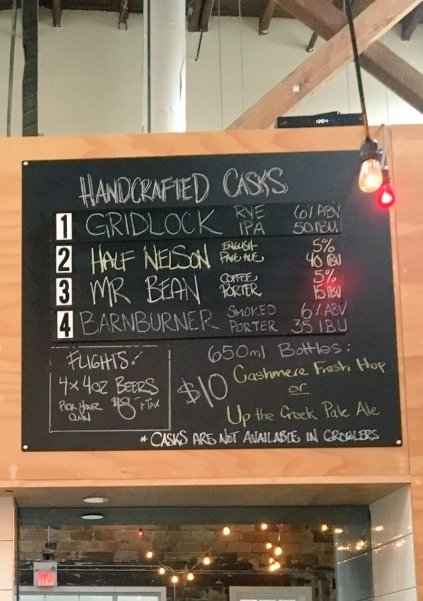 HANDCRAFTED CASKS
1 GRIDLOCK RYE IPA 6% ABV 50 IBU
2 HALF NELSON ENGLISH PALE ALE 5% 40 IBU
3 MR BEAN COFFEE PORTER 5% 15 IBU
4 BARNBURNER SMOKED PORTER 6% ABV 35 IBU
FLIGHTS:
4x4oz BEERS
PICK YOUR OWN $8 + TAX
650ml Bottles:
$10 Cashmere Fresh Hop
or
Up the Creek Pale Ale
* CASKS ARE NOT AVAILABLE IN GROWLERS